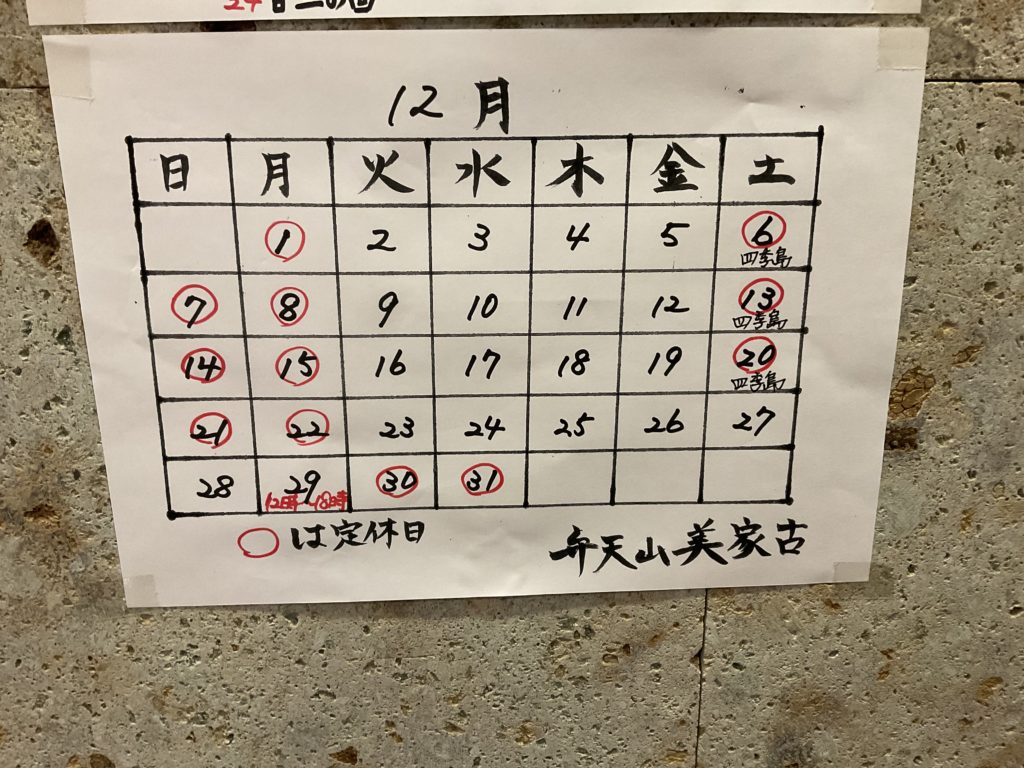 12月
日 月 火 水 木 金 土
1 2 3 4 5 6
四季島
7 8 9 10 11 12 13
四季島
14 15 16 17 18 19 20
四季島
21 22 23 24 25 26 27
28 29 30 31
12時~18時
○は定休日
弁天山美家古